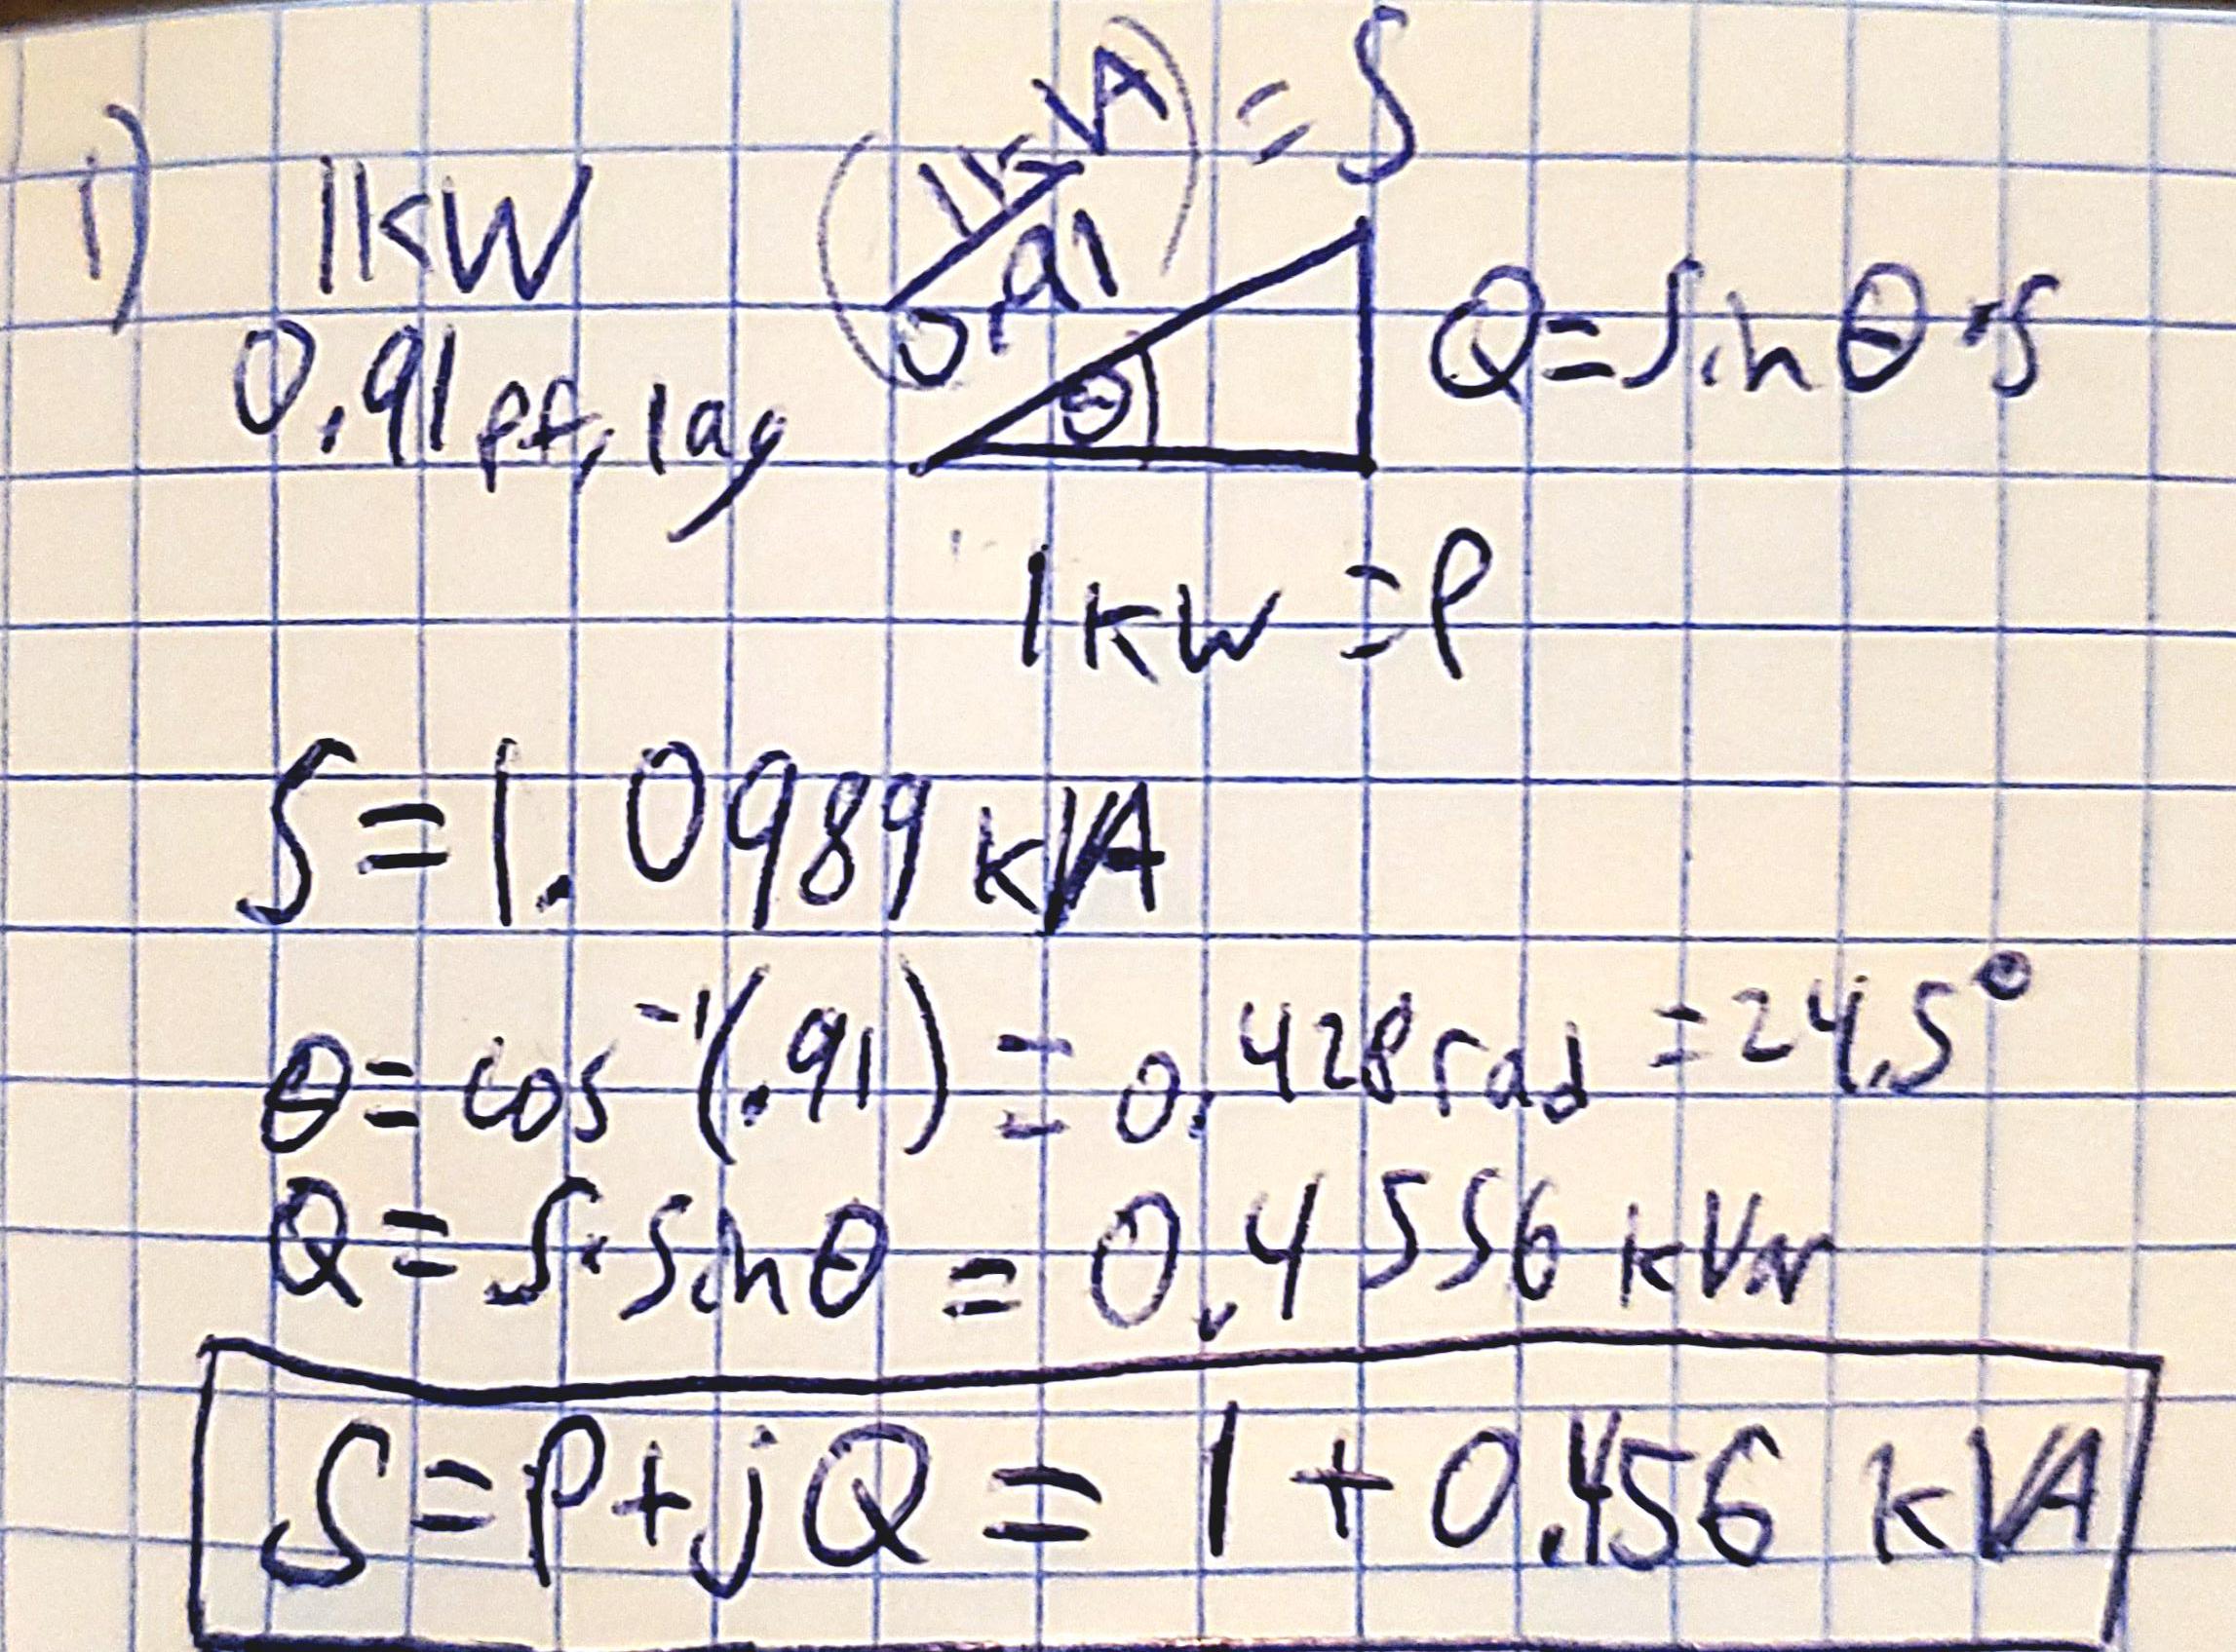 1)
1kW
0.91 pf, lag
(1kVA
0.91) = S
θ
Q=sinθ·S
1kW = P
S=1.0989 kVA
θ= cos⁻¹(.91) = 0.428 rad = 24.5°
Q= S·sinθ = 0.4556 kVar
S=P+jQ = 1+0.456 kVA